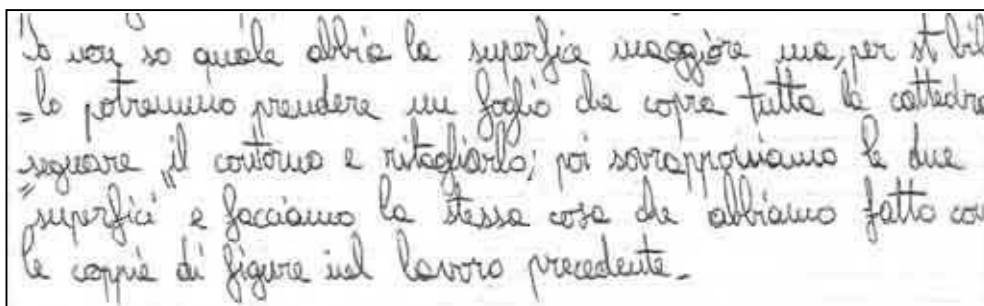 Io non so quale abbia la superfice maggiore ma, per st bil
= lo potremmo prendere un foglio che copra tutta la cattedra
segnare il contorno e ritagliarlo; poi sovrapponiamo le due
"superfici" e facciamo la stessa cosa che abbiamo fatto con
le coppie di figure nel lavoro precedente.